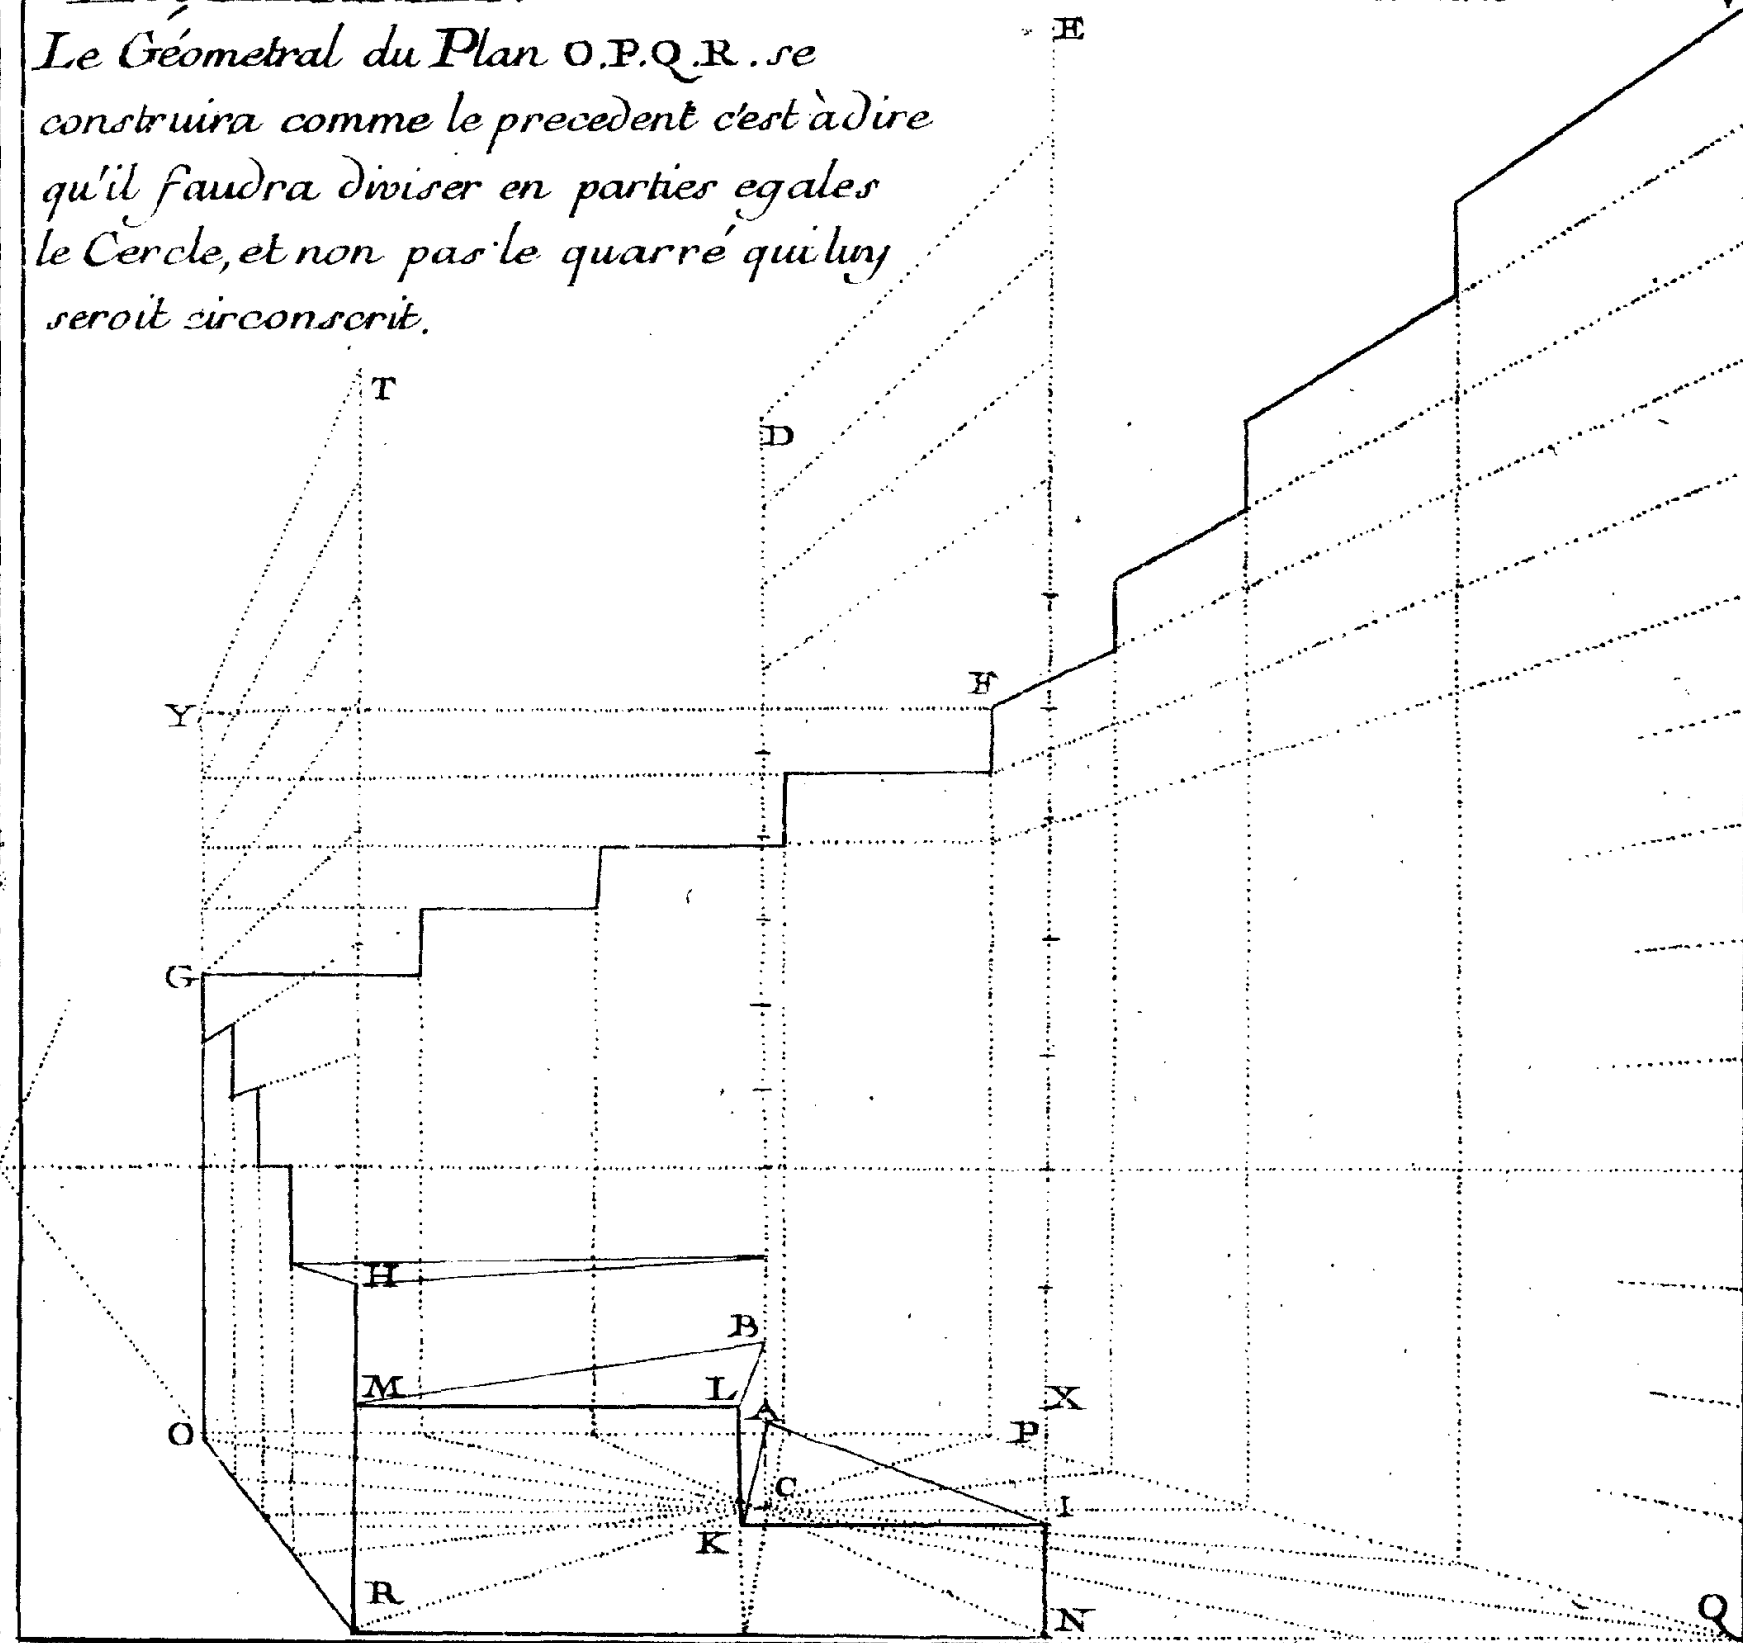 Le Géometral du Plan O.P.Q.R. se
construira comme le precedent c'est à dire
qu'il faudra diviser en parties egales
le Cercle, et non pas le quarré qui luy
seroit circonscrit.
E
T
D
F
Y
G
H
B
M
L
A
X
O
P
C
I
K
R
N
Q